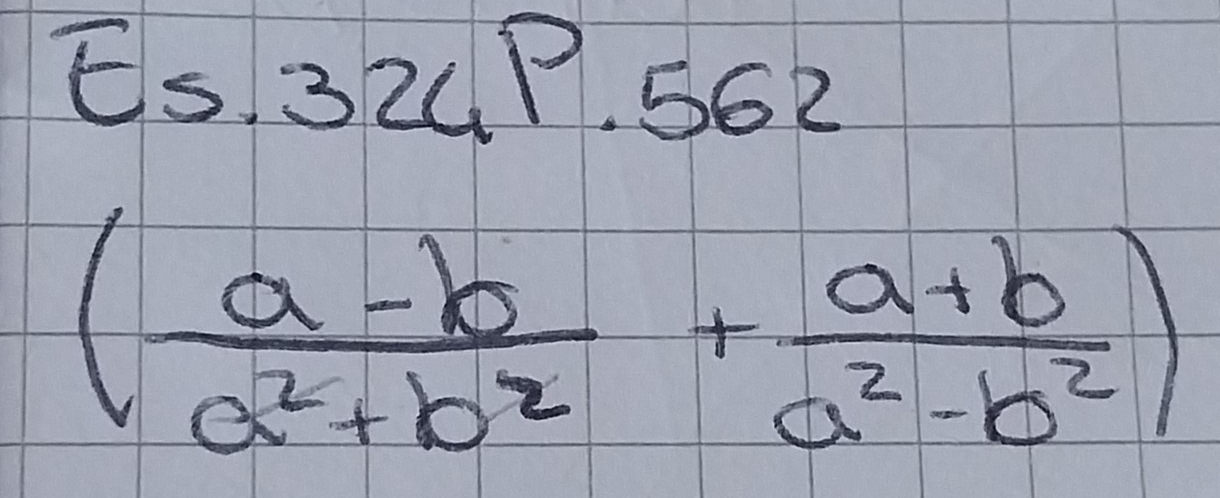 Es. 324 P. 562
(a - b / a² + b² + a + b / a² - b²)